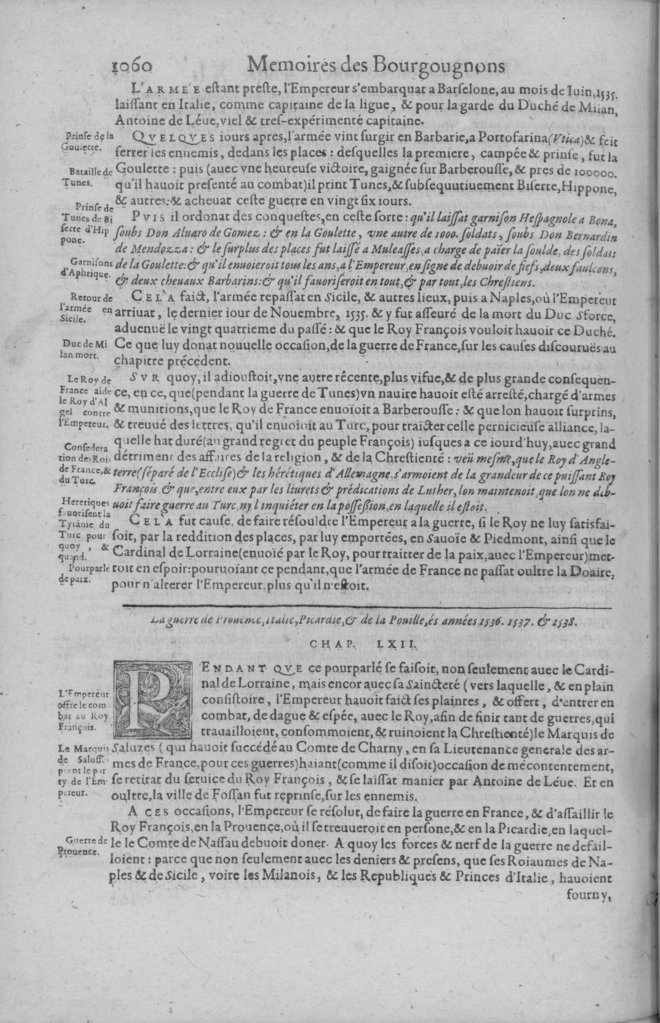 1060 Memoires des Bourgougnons
L'ARMÉE estant preste, l'Empereur s'embarquat a Barselone, au mois de Iuin, 1535.
laissant en Italie, comme capitaine de la ligue, & pour la garde du Duché de Milan,
Antoine de Léue, viel & tres-expérimenté capitaine.
Prinse de la
Goulette.
QVELQVES iours apres, l'armée vint surgir en Barbarie, a Portofarina (Vtica) & feit
serrer les ennemis, dedans les places: desquelles la premiere, campée & prinse, fut la
Bataille de
Tunes.
Goulette: puis (auec vne heureuse victoire, gaignée sur Barberousse, & pres de 100000.
qu'il hauoit presenté au combat) il print Tunes, & subsequutiuement Biserte, Hippone,
& autres: & acheuat ceste guerre en vingt six iours.
Prinse de
Tunes de Bi
serte d'Hip
pone.
PVIS il ordonat des conquestes, en ceste sorte: qu'il laissat garnison Hespagnole a Bona,
soubs Don Aluaro de Gomez: & en la Goulette, vne autre de 1000. soldats, soubs Don Bernardin
de Mendozza: & le surplus des places fut laissé a Muleasses, a charge de païer la soulde, des soldats
Garnisons
d'Aphrique.
de la Goulette: & qu'il enuoieroit tous les ans, a l'Empereur, en signe de debuoir de fiefs, deux faulcons,
& deux cheuaux Barbarins: & qu'il fauoriseroit en tout, & par tout, les Chrestiens.
Retour de
l'armée en
Sicile.
CELA faict, l'armée repassat en Sicile, & autres lieux, puis a Naples, où l'Empereur
arriuat, le dernier iour de Nouembre, 1535. & y fut asseuré de la mort du Duc Sforce,
aduenuë le vingt quatrieme du passé: & que le Roy François vouloit hauoir ce Duché.
Duc de Mi
lan mort.
Ce que luy donat nouuelle occasion, de la guerre de France, sur les causes discouruës au
chapitre précedent.
Le Roy de
France aide
le Roy d'Al
gel contre
l'Empereur.
SVR quoy, il adioustoit, vne autre récente, plus vifue, & de plus grande consequen-
ce, en ce, que (pendant la guerre de Tunes) vn nauire hauoit esté arresté, chargé d'armes
& munitions, que le Roy de France enuoïoit a Barberousse: & que lon hauoit surprins,
& treuué des lettres, qu'il enuoioit au Turc, pour traicter celle pernicieuse alliance, la-
quelle hat duré (au grand regret du peuple François) iusques a ce iourd'huy, auec grand
Confedera
tion des Rois
de France, &
du Turc.
détriment des affaires de la religion, & de la Chrestienté: veü mesme, que le Roy d'Angle-
terre (séparé de l'Ecclise) & les hérétiques d'Allemagne, s'armoient de la grandeur de ce puissant Roy
François & que, entre eux par les liurets & prédications de Luther, lon maintenoit, que lon ne deb-
uoit faire guerre au Turc, ny l'inquiéter en la possession, en laquelle il estoit.
Heretiques
fauorisent la
Tyranie du
Turc pour
quoy, &
quand.
CELA fut cause, de faire résouldre l'Empereur a la guerre, si le Roy ne luy satisfai-
soit, par la reddition des places, par luy emportées, en Sauoïe & Piedmont, ainsi que le
Cardinal de Lorraine (enuoié par le Roy, pour traitter de la paix, auec l'Empereur) met-
Pourparle
de paix.
toit en espoir: pourueant ce pendant, que l'armée de France ne passat oultre la Doaire,
pour n'alterer l'Empereur, plus qu'il n'estoit.
La guerre de Prouence, Italie, Picardie, & de la Pouille, és années 1536. 1537. & 1538.
CHAP. LXII.
PENDANT QVE ce pourparlé se faisoit, non seulement auec le Cardi-
nal de Lorraine, mais encor auec sa Saincteté (vers laquelle, & en plain
L'Empereur
offre le com
bat au Roy
François.
consistoire, l'Empereur hauoit faict ses plaintes, & offert, d'entrer en
combat, de dague & espée, auec le Roy, afin de finir tant de guerres, qui
trauailloient, consommoient, & ruinoient la Chrestienté) le Marquis de
Le Marquis
de Saluss.
prent le par
ty de l'Em
pereur.
Saluzes (qui hauoit succédé au Comte de Charny, en sa Lieutenance generale des ar-
mes de France, pour ces guerres) haiant (comme il disoit) occasion de mécontentement,
se retirat du seruice du Roy François, & se laissat manier par Antoine de Léue. Et en
oultre, la ville de Fossan fut reprinse, sur les ennemis.
A CES occasions, l'Empereur se résolut, de faire la guerre en France, & d'assaillir le
Roy François, en la Prouence, où il se treuueroit en persone, & en la Picardie, en laquel-
Guerre de
Prouence.
le le Comte de Nassau debuoit doner. A quoy les forces & nerf de la guerre ne defail-
loient: parce que non seulement auec les deniers & presens, que ses Roiaumes de Na-
ples & de Sicile, voire les Milanois, & les Republiques & Princes d'Italie, hauoient
fourny,